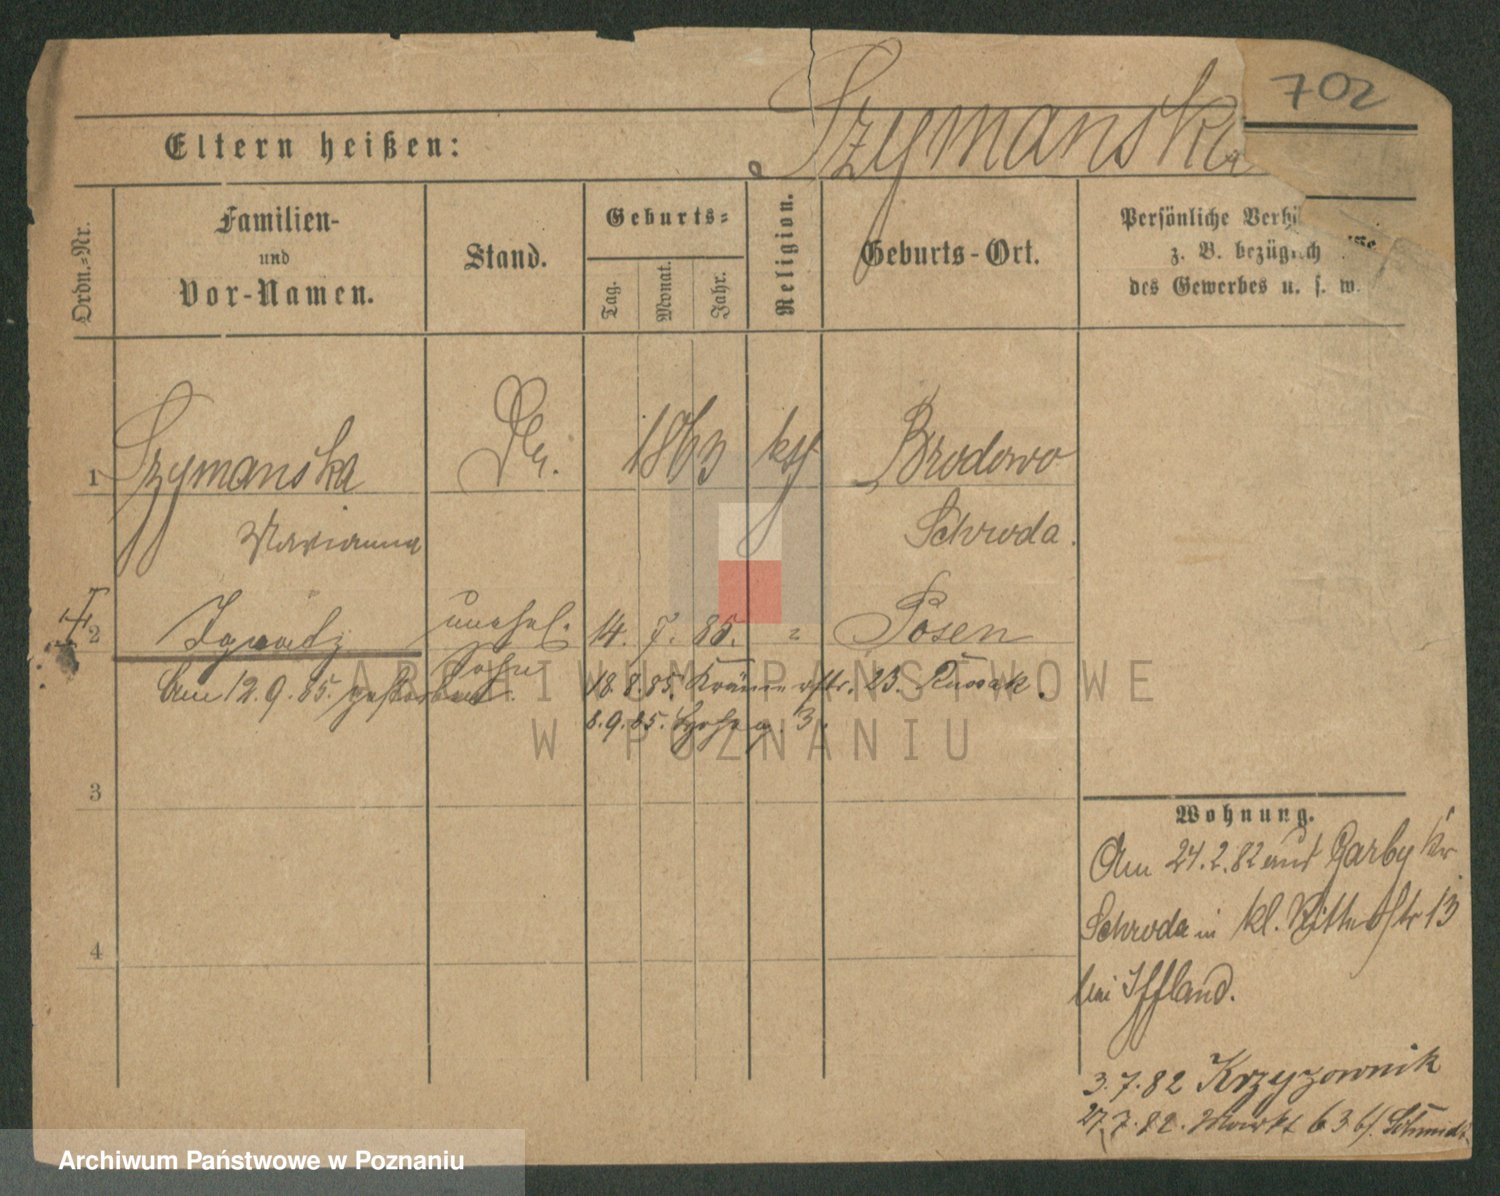 702
Szymanska
Eltern heißen:
Ordn.-Nr.
Familien-
und
Vor-Namen.
Stand.
Geburts-
Tag.
Monat.
Jahr.
Religion.
Geburts-Ort.
Persönliche Verhä
z. B. bezüglich
des Gewerbes u. s. w.
1 Szymanska 1863 Brodowo
Marianna Schroda.
2 Ignatz unehel. 14. 7. 85. Posen
Sohn
Am 12.9.85. gestorben. 18.8.85. Krämerstr. 23. Russak.
8.9.85. 3.
3
4
Wohnung.
Am 24.2.82 aus Garby Kr
Schroda in kl. Ritterstr 13
bei Iffland.
3.7.82 Krzyzownik
27.7.82. Markt 63 b/. Schmidt
ARCHIWUM PAŃSTWOWE
W POZNANIU
Archiwum Państwowe w Poznaniu